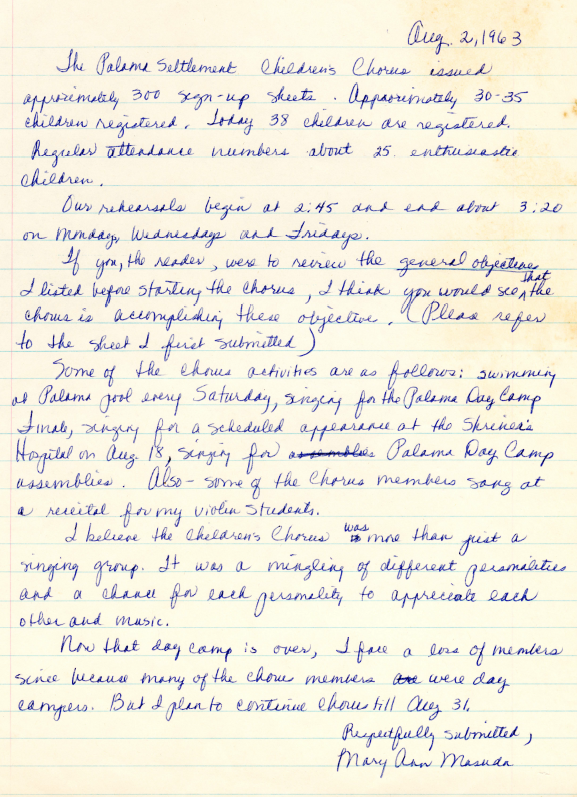 Aug. 2, 1963
The Palama Settlement Children's Chorus issued
approximately 300 sign-up sheets. Approximately 30-35
children registered. Today 38 children are registered.
Regular attendance numbers about 25 enthusiastic
children.
Our rehearsals begin at 2:45 and end about 3:20
on Mondays, Wednesdays and Fridays.
If you, the reader, were to review the general objectives
I listed before starting the chorus, I think you would see that the
chorus is accomplishing these objective. (Please refer
to the sheet I first submitted)
Some of the chorus activities are as follows: swimming
at Palama pool every Saturday, singing for the Palama Day Camp
Finale, singing for a scheduled appearance at the Shriner's
Hospital on Aug. 18, singing for assemblies Palama Day Camp
assemblies. Also - some of the Chorus members sang at
a recital for my violin students.
I believe the Children's Chorus is was more than just a
singing group. It was a mingling of different personalities
and a chance for each personality to appreciate each
other and music.
Now that day camp is over, I face a loss of members
since because many of the chorus members are were day
campers. But I plan to continue Chorus till Aug 31.
Respectfully submitted,
Mary Ann Masuda